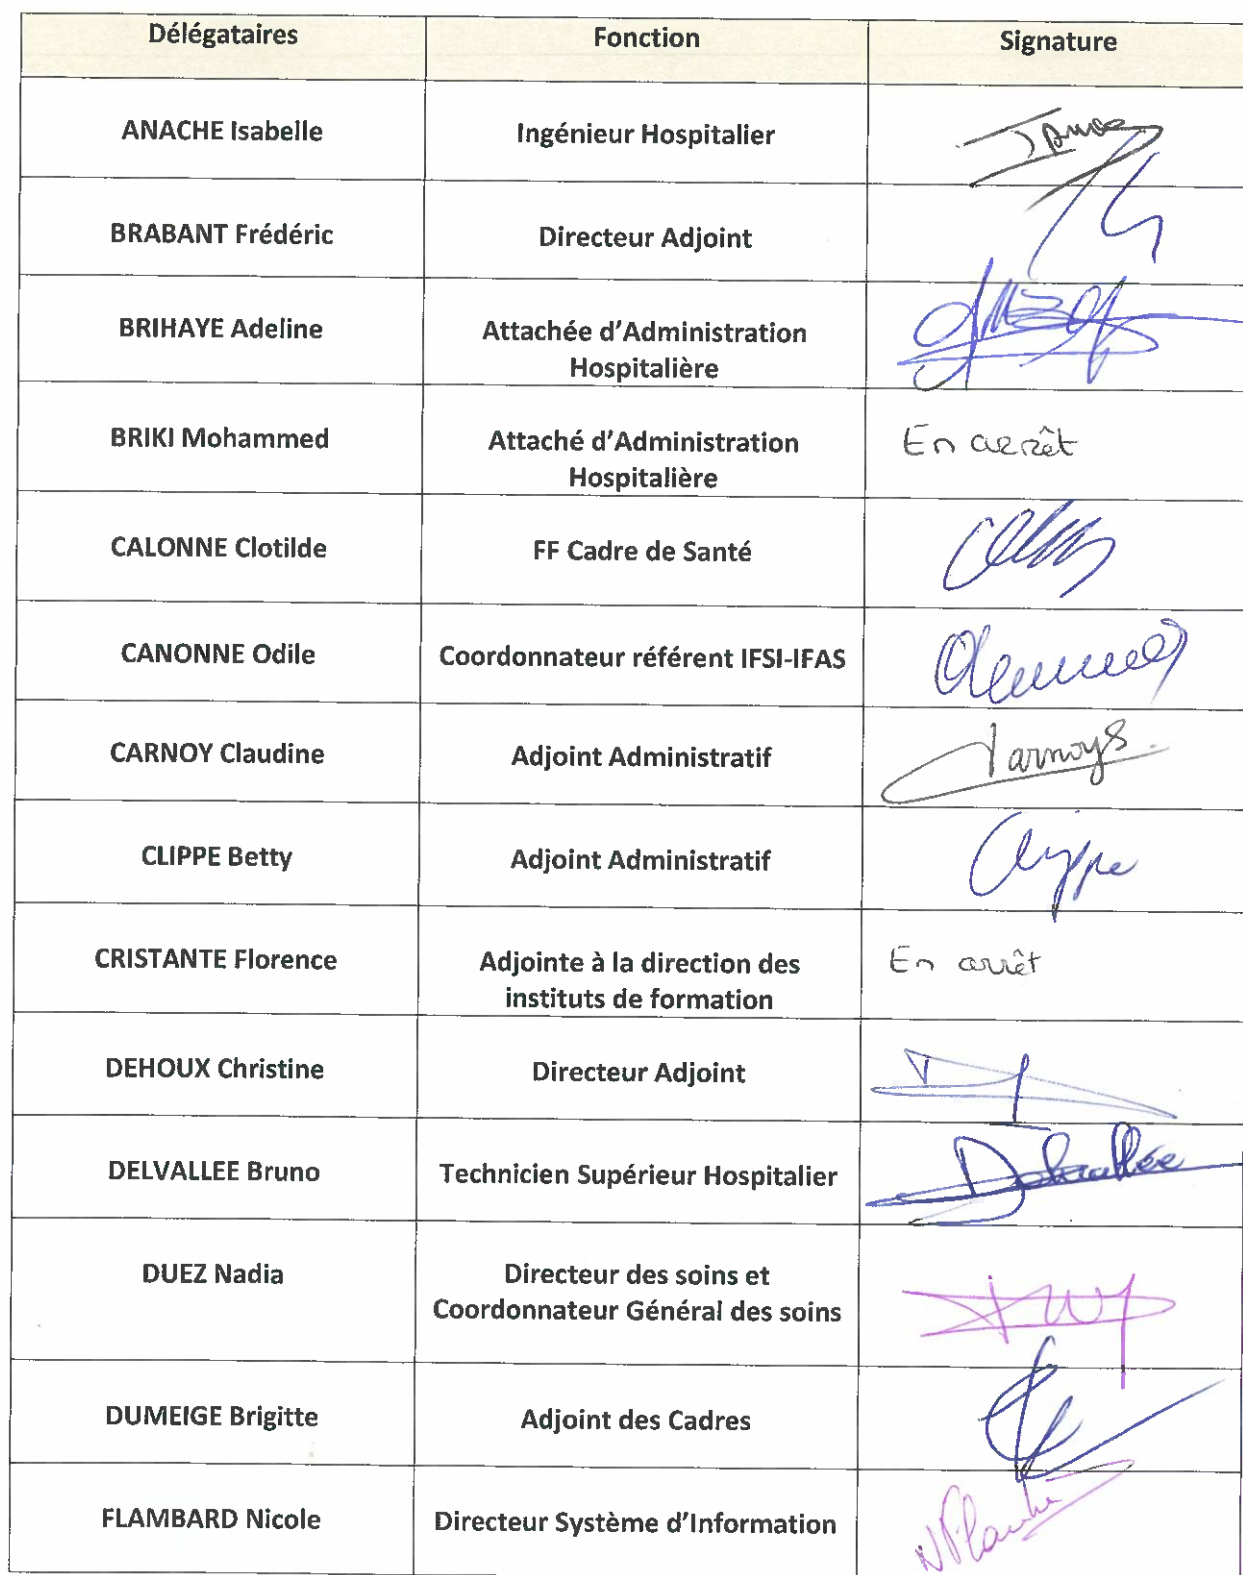 Délégataires Fonction Signature
ANACHE Isabelle Ingénieur Hospitalier
BRABANT Frédéric Directeur Adjoint
BRIHAYE Adeline Attachée d'Administration
Hospitalière
BRIKI Mohammed Attaché d'Administration En arrêt
Hospitalière
CALONNE Clotilde FF Cadre de Santé
CANONNE Odile Coordonnateur référent IFSI-IFAS
CARNOY Claudine Adjoint Administratif
CLIPPE Betty Adjoint Administratif Clippe
CRISTANTE Florence Adjointe à la direction des En arrêt
instituts de formation
DEHOUX Christine Directeur Adjoint
DELVALLEE Bruno Technicien Supérieur Hospitalier Delvallée
DUEZ Nadia Directeur des soins et
Coordonnateur Général des soins
DUMEIGE Brigitte Adjoint des Cadres
FLAMBARD Nicole Directeur Système d'Information